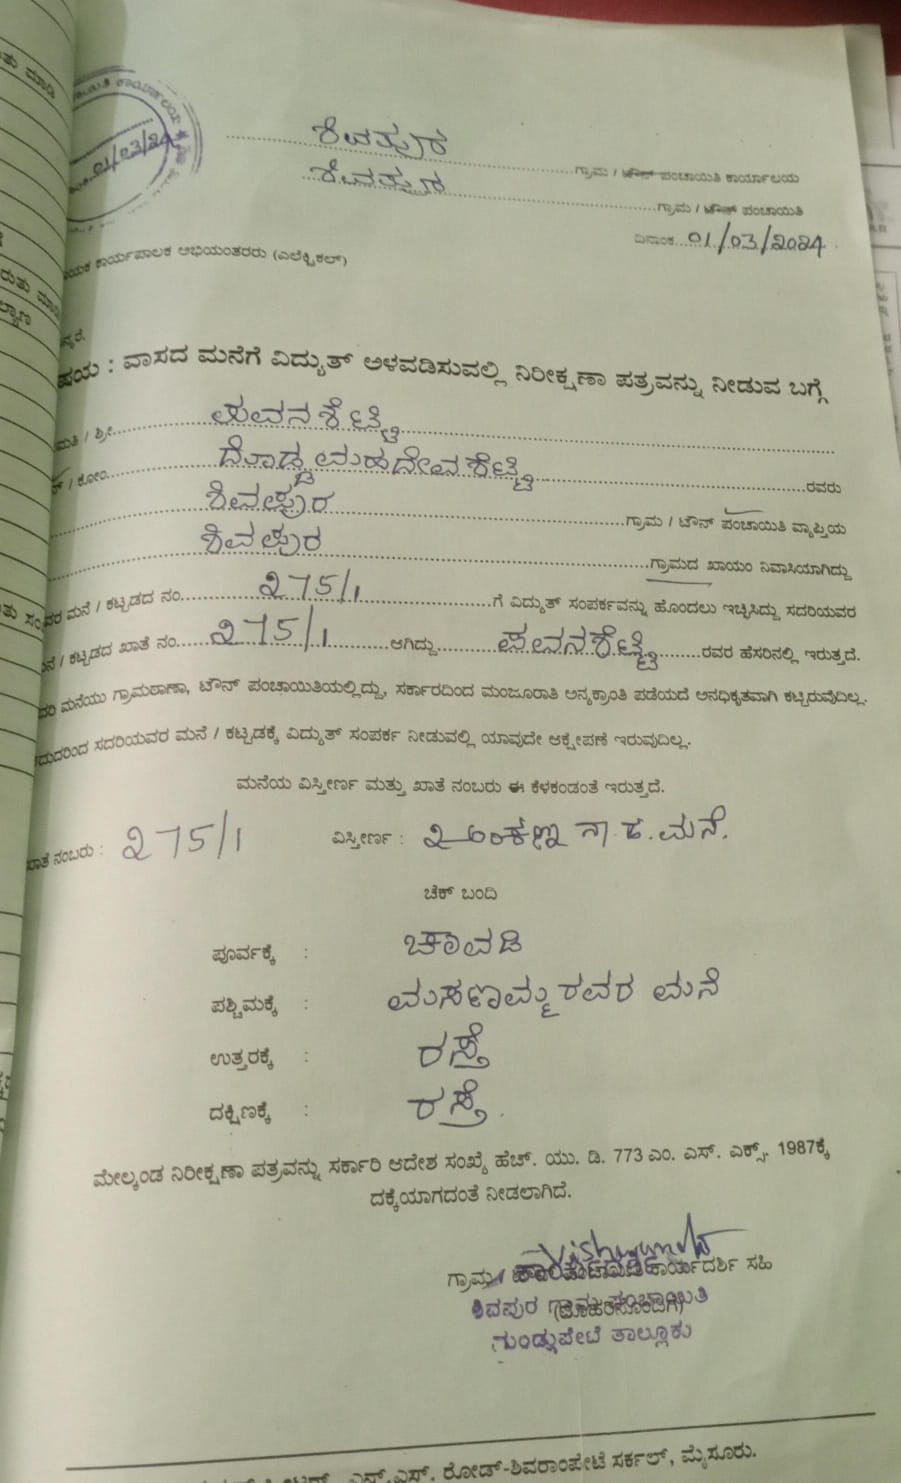 01/03/24
ಶಿವಪುರ
ಶಿವಪುರ ಗ್ರಾಮ / ಟೌನ್ ಪಂಚಾಯಿತಿ ಕಾರ್ಯಾಲಯ
ಗ್ರಾಮ / ಟೌನ್ ಪಂಚಾಯಿತಿ
ದಿನಾಂಕ 01/03/2024
ಕಾರ್ಯಪಾಲಕ ಅಭಿಯಂತರರು (ಎಲೆಕ್ಟ್ರಿಕಲ್)
: ವಾಸದ ಮನೆಗೆ ವಿದ್ಯುತ್ ಅಳವಡಿಸುವಲ್ಲಿ ನಿರೀಕ್ಷಣಾ ಪತ್ರವನ್ನು ನೀಡುವ ಬಗ್ಗೆ
/ ಶ್ರೀ ಪವನಶೆಟ್ಟಿ
/ ಕೋಂ ದೊಡ್ಡಮಹದೇವಶೆಟ್ಟಿ ರವರು
ಶಿವಪುರ ಗ್ರಾಮ / ಟೌನ್ ಪಂಚಾಯಿತಿ ವ್ಯಾಪ್ತಿಯ
ಶಿವಪುರ ಗ್ರಾಮದ ಖಾಯಂ ನಿವಾಸಿಯಾಗಿದ್ದು
ಮನೆ / ಕಟ್ಟಡದ ನಂ. 275/1 ಗೆ ವಿದ್ಯುತ್ ಸಂಪರ್ಕವನ್ನು ಹೊಂದಲು ಇಚ್ಛಿಸಿದ್ದು ಸದರಿಯವರ
/ ಕಟ್ಟಡದ ಖಾತೆ ನಂ 275/1 ಆಗಿದ್ದು ಪವನಶೆಟ್ಟಿ ರವರ ಹೆಸರಿನಲ್ಲಿ ಇರುತ್ತದೆ.
ಮನೆಯು ಗ್ರಾಮಠಾಣಾ, ಟೌನ್ ಪಂಚಾಯಿತಿಯಲ್ಲಿದ್ದು, ಸರ್ಕಾರದಿಂದ ಮಂಜೂರಾತಿ ಅನ್ಯಕ್ರಾಂತಿ ಪಡೆಯದೆ ಅನಧಿಕೃತವಾಗಿ ಕಟ್ಟಿರುವುದಿಲ್ಲ.
ಸದರಿಯವರ ಮನೆ / ಕಟ್ಟಡಕ್ಕೆ ವಿದ್ಯುತ್ ಸಂಪರ್ಕ ನೀಡುವಲ್ಲಿ ಯಾವುದೇ ಆಕ್ಷೇಪಣೆ ಇರುವುದಿಲ್ಲ.
ಮನೆಯ ವಿಸ್ತೀರ್ಣ ಮತ್ತು ಖಾತೆ ನಂಬರು ಈ ಕೆಳಕಂಡಂತೆ ಇರುತ್ತದೆ.
ನಂಬರು : 275/1 ವಿಸ್ತೀರ್ಣ : 2 ಅಂಕಣ ನಾ.ಹ. ಮನೆ.
ಚೆಕ್ ಬಂದಿ
ಪೂರ್ವಕ್ಕೆ : ಚಾವಡಿ
ಪಶ್ಚಿಮಕ್ಕೆ : ಮಸಣಮ್ಮರವರ ಮನೆ
ಉತ್ತರಕ್ಕೆ : ರಸ್ತೆ
ದಕ್ಷಿಣಕ್ಕೆ : ರಸ್ತೆ.
ಮೇಲ್ಕಂಡ ನಿರೀಕ್ಷಣಾ ಪತ್ರವನ್ನು ಸರ್ಕಾರಿ ಆದೇಶ ಸಂಖ್ಯೆ ಹೆಚ್. ಯು. ಡಿ. 773 ಎಂ. ಎಸ್. ಎಕ್ಸ್. 1987ಕ್ಕೆ
ದಕ್ಕೆಯಾಗದಂತೆ ನೀಡಲಾಗಿದೆ.
ಗ್ರಾಮ / ಕಾರ್ಯದರ್ಶಿ ಸಹಿ
ಶಿವಪುರ ಗ್ರಾಮ ಪಂಚಾಯಿತಿ
ಗುಂಡ್ಲುಪೇಟೆ ತಾಲ್ಲೂಕು
ಎನ್.ಎಸ್. ರೋಡ್-ಶಿವರಾಂಪೇಟೆ ಸರ್ಕಲ್, ಮೈಸೂರು.